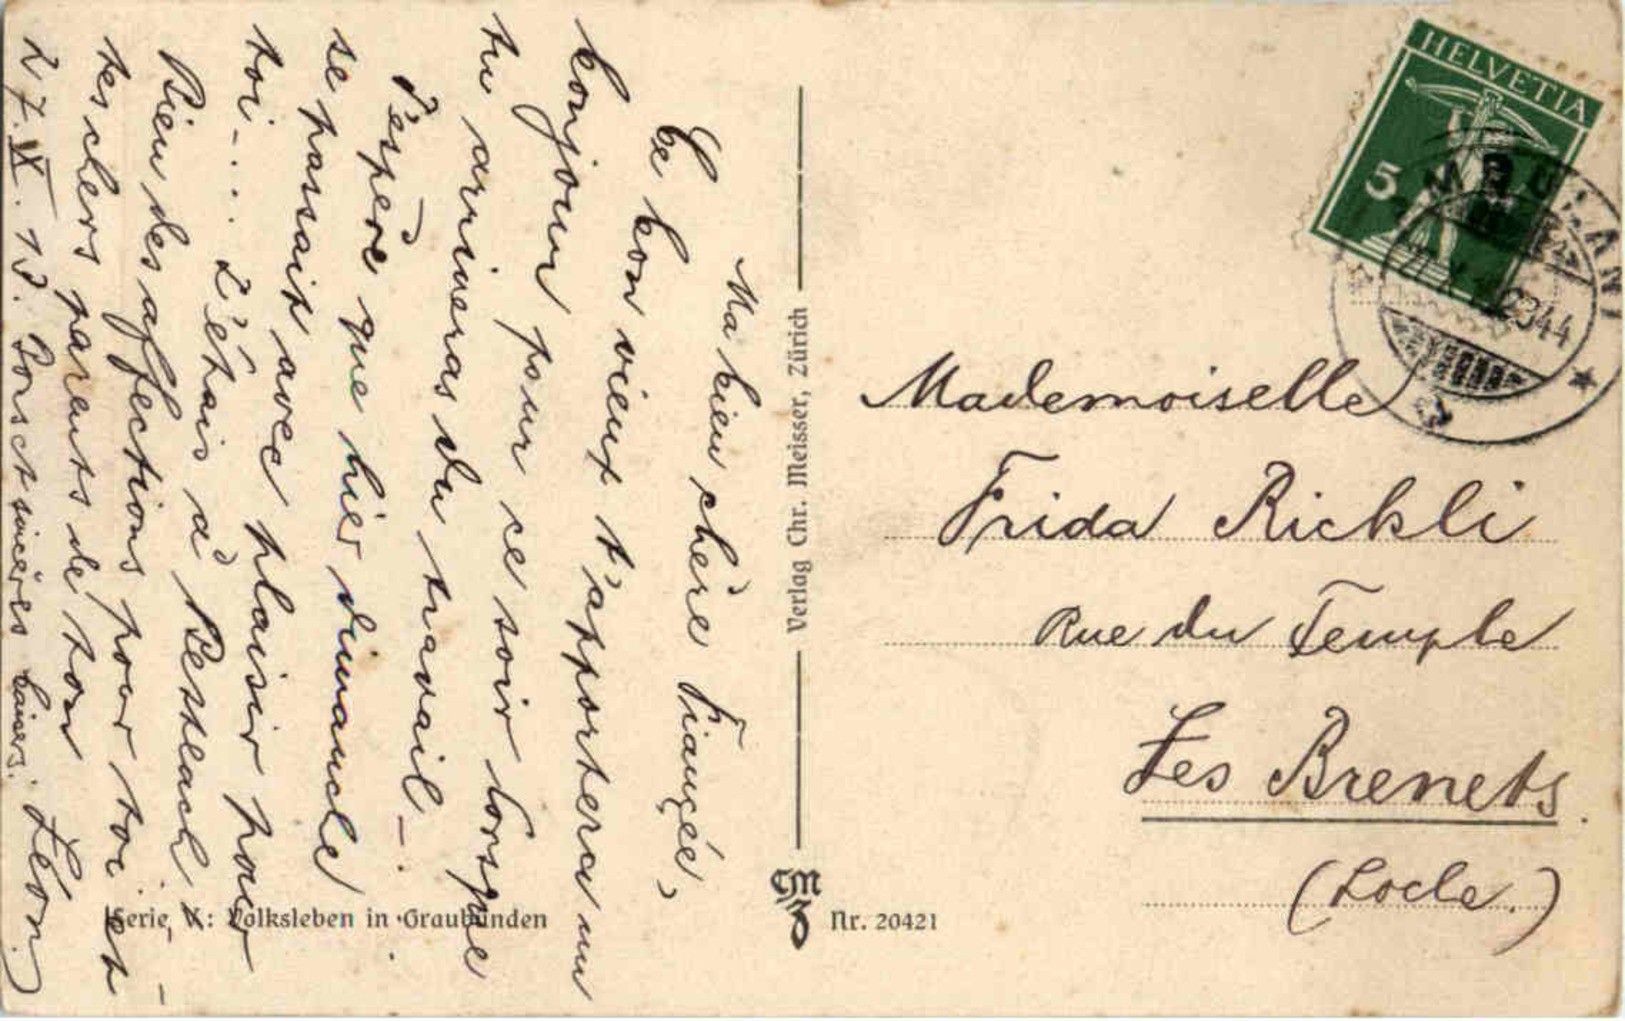 Ma bien chère Fiancée,
Ce bon vient t'apporterai un
bonjour pour ce soir lorsque
tu arriveras du travail –.
J'espère que hier dimanche
se passait avec plaisir pour
toi –... L'étais à
Rien des affections pour toi et
tes chers parents de ton
27. IX. 13. sincères baisers. Léon.
Verlag Chr. Meisser, Zürich
Serie V.: Volksleben in Graubünden
CM
Nr. 20421
HELVETIA
5
Mademoiselle
Frida Rickli
Rue du Temple
Les Brenets.
(Locle.)